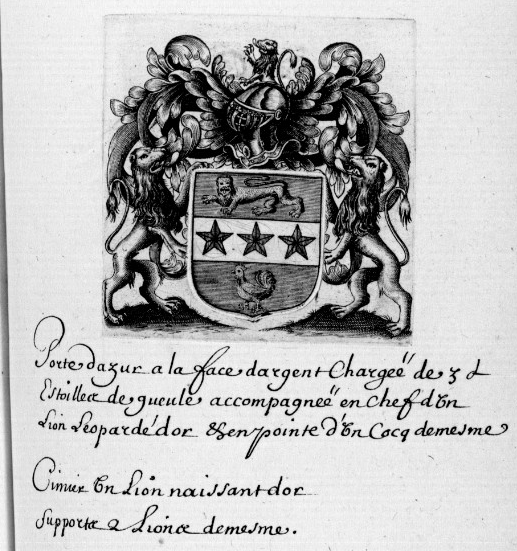 Porte dazur a la face dargent Chargeë de 3
Estoilles de gueule accompagneë en chef d'Vn
Lion Leopardé d'or & en pointe d'Vn Cocq demesme
Cimier Vn Lion naissant dor
Supports 2 Lions demesme.